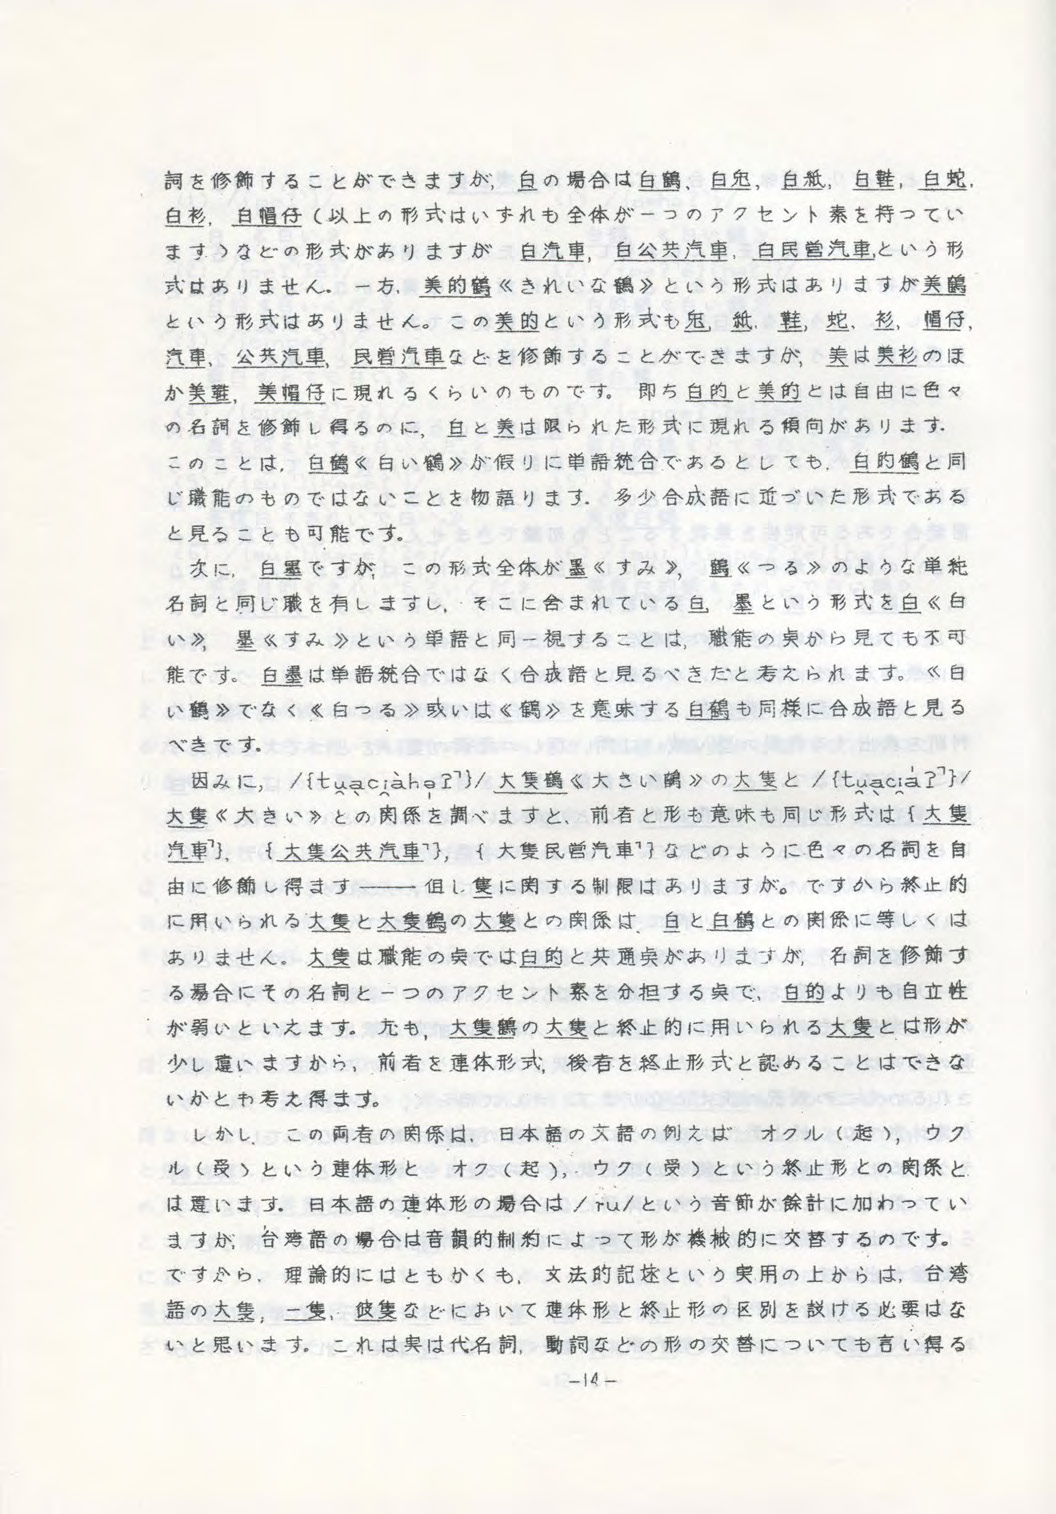 詞を修飾することができますが, 白の場合は白鶴, 白兎, 白紙, 白鞋, 白蛇,
白衫, 白帽仔(以上の形式はいずれも全体が一つのアクセント素を持つてい
ます)などの形式がありますが 白汽車, 白公共汽車, 白民営汽車,という形
式はありません. 一方, 美的鶴《きれいな鶴》という形式はありますが美鶴
という形式はありません。この美的という形式も兎, 紙, 鞋, 蛇, 衫, 帽仔,
汽車, 公共汽車, 民営汽車などを修飾することができますが, 美は美衫のほ
か美鞋, 美帽仔に現れるくらいのものです。 即ち白的と美的とは自由に色々
の名詞を修飾し得るのに, 白と美は限られた形式に現れる傾向があります.
このことは, 白鶴《白い鶴》が仮りに単語統合であるとしても, 白的鶴と同
じ職能のものではないことを物語ります. 多少合成語に近づいた形式である
と見ることも可能です。
次に, 白墨ですが, この形式全体が墨《すみ》, 鶴《つる》のような単純
名詞と同じ職を有しますし, そこに含まれている白, 墨という形式を白《白
い》, 墨《すみ》という単語と同一視することは, 職能の点から見ても不可
能です。 白墨は単語統合ではなく合成語と見るべきだと考えられます。《白
い鶴》でなく《白つる》或いは《鶴》を意味する白鶴も同様に合成語と見る
べきです.
因みに, 大隻鶴《大きい鶴》の大隻と
大隻《大きい》との関係を調べますと, 前者と形も意味も同じ形式は{大隻
汽車˥}, {大隻公共汽車˥}, {大隻民営汽車˥}などのように色々の名詞を自
由に修飾し得ます――但し隻に関する制限はありますが。ですから終止的
に用いられる大隻と大隻鶴の大隻との関係は, 白と白鶴との関係に等しくは
ありません. 大隻は職能の点では白的と共通点がありますが, 名詞を修飾す
る場合にその名詞と一つのアクセント素を分担する点で, 白的よりも自立性
が弱いといえます. 尤も, 大隻鶴の大隻と終止的に用いられる大隻とは形が
少し違いますから, 前者を連体形式, 後者を終止形式と認めることはできな
いかとも考え得ます。
しかし, この両者の関係は, 日本語の文語の例えば オクル(起), ウク
ル(受)という連体形と オク(起), ウク(受)という終止形との関係と
は違います. 日本語の連体形の場合は/ru/という音節が余計に加わつてい
ますが, 台湾語の場合は音韻的制約によつて形が機械的に交替するのです。
ですから, 理論的にはともかくも, 文法的記述という実用の上からは, 台湾
語の大隻, 一隻, 彼隻などにおいて連体形と終止形の区別を設ける必要はな
いと思います. これは実は代名詞, 動詞などの形の交替についても言い得る
-14-